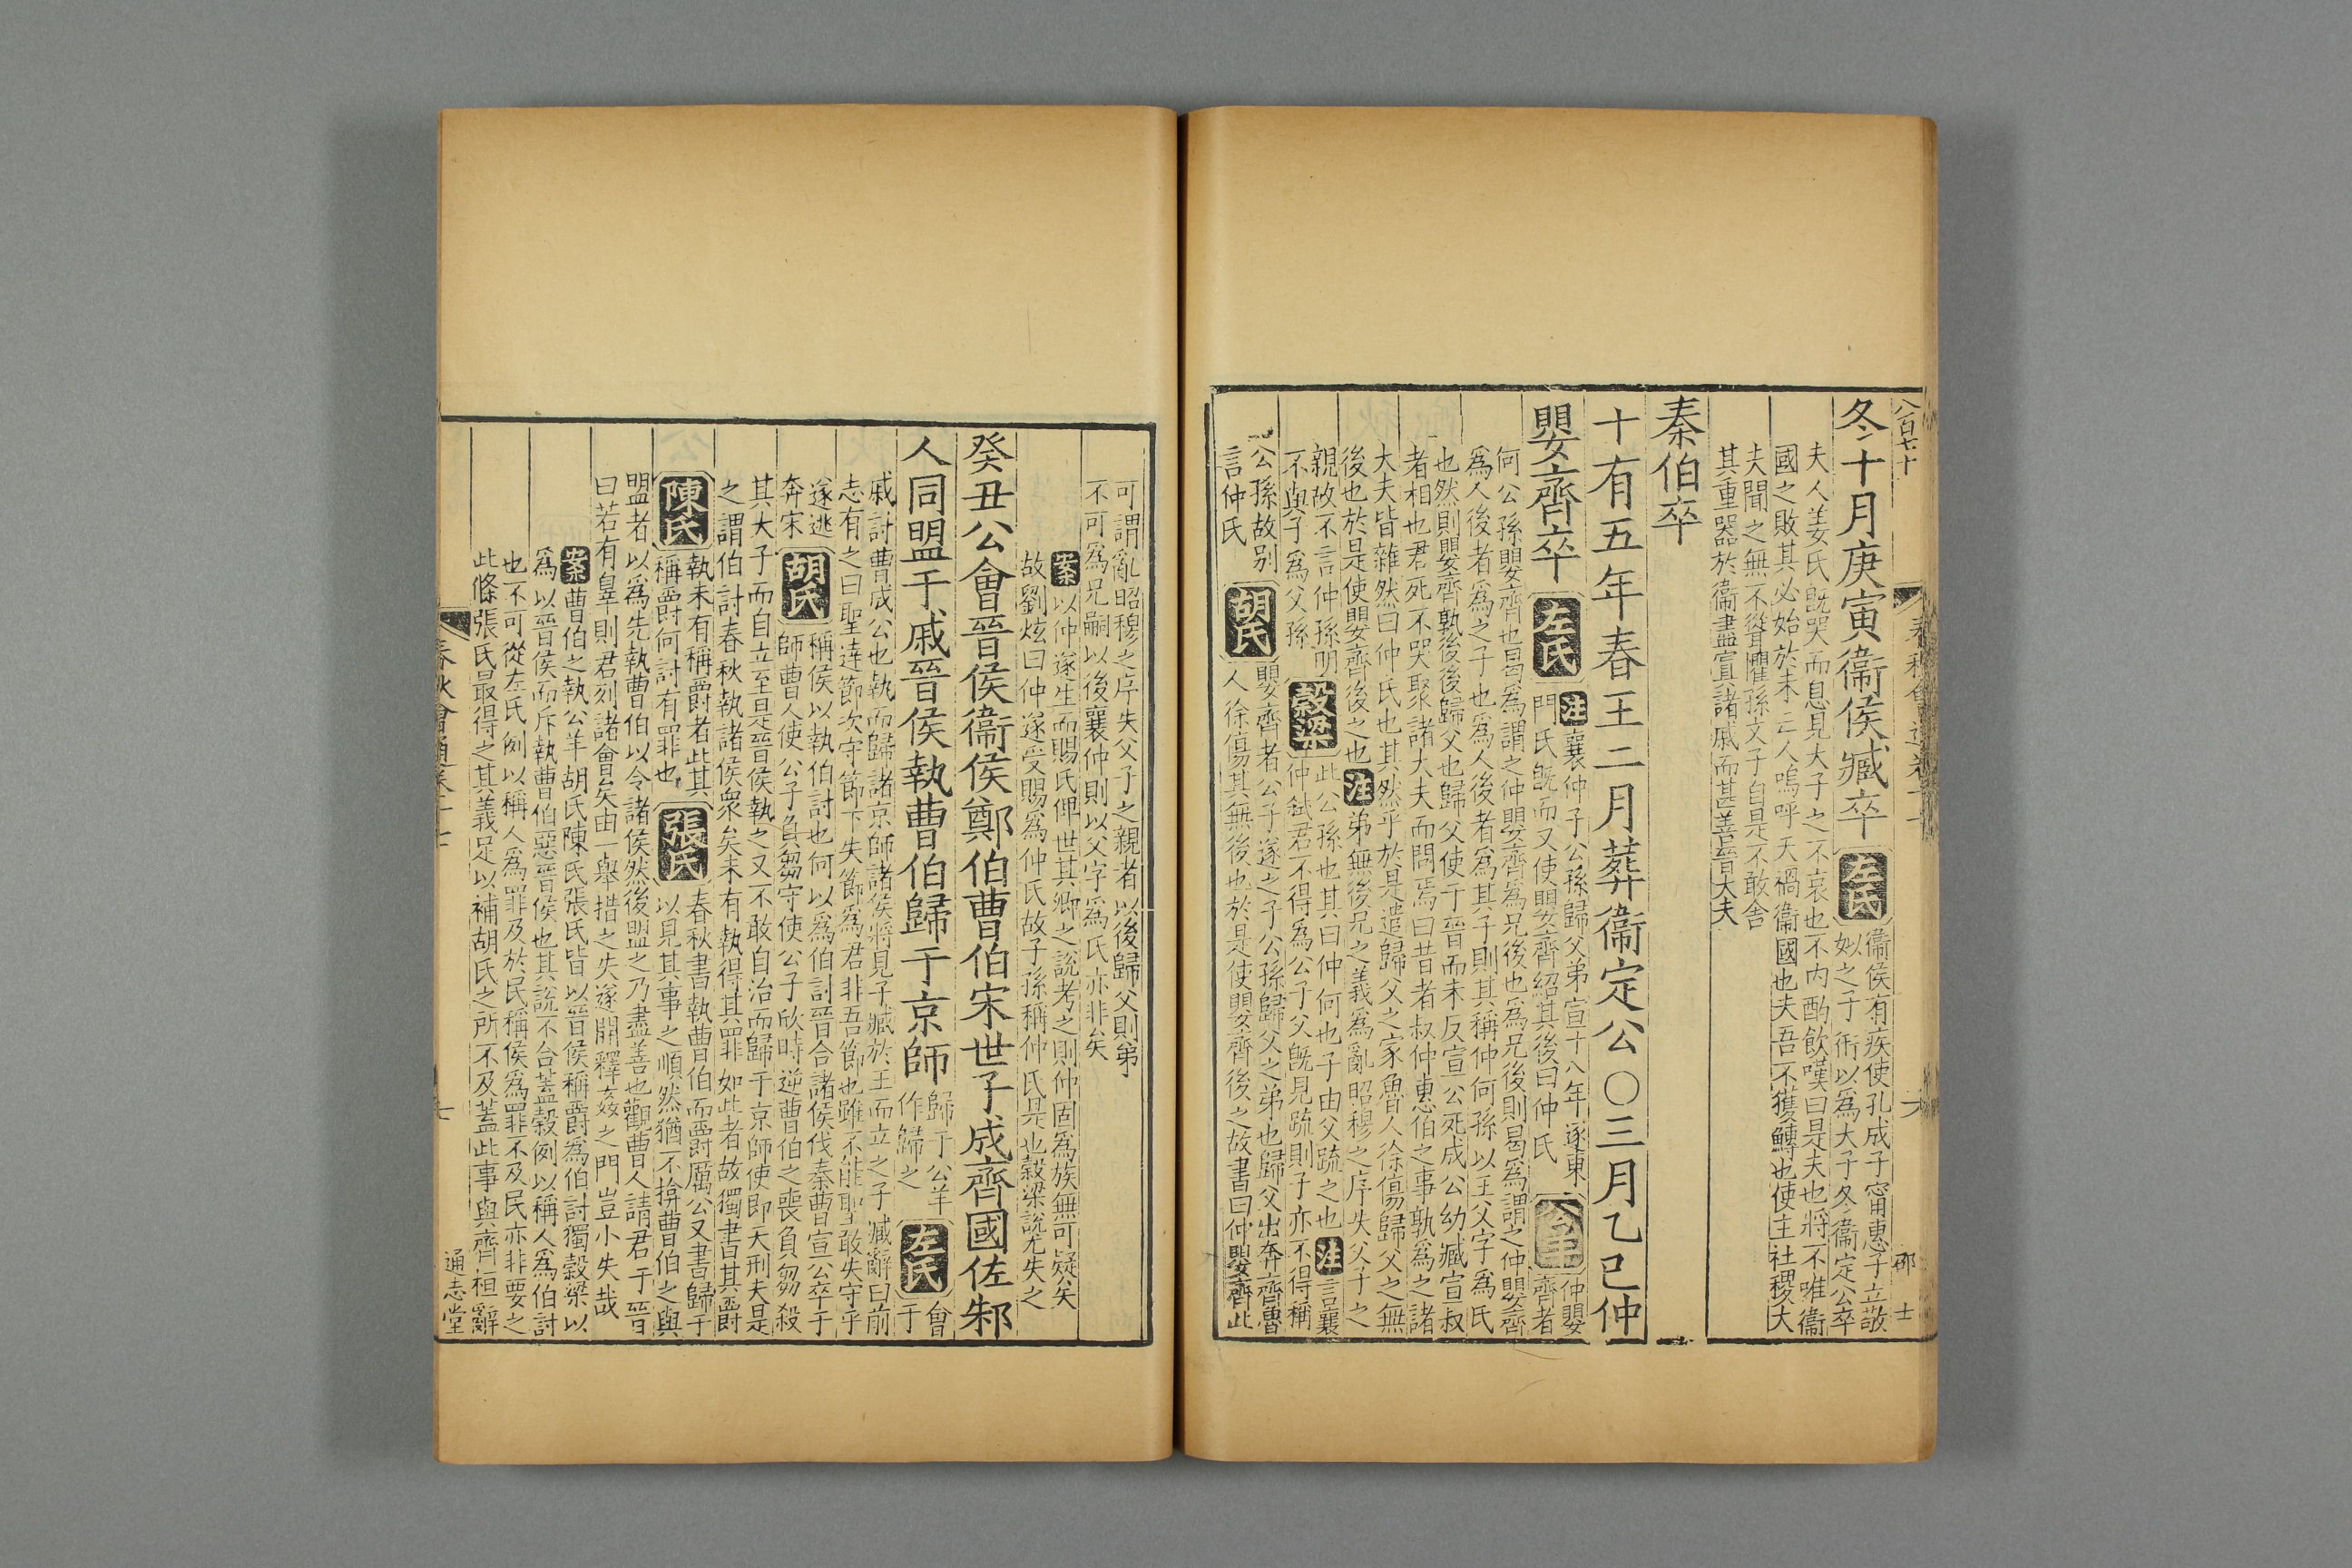 八百七十
冬十月庚寅衞侯臧卒
左氏
衞侯有疾使孔成子甯惠子立敬
姒之子衎以爲大子冬衞定公卒
夫人姜氏既哭而息見大子之不哀也不内酌飲嘆曰是夫也將不唯衞
國之敗其必始於未亡人嗚呼天禍衞國也夫吾不獲鱄也使主社稷大
夫聞之無不聳懼孫文子自是不敢舍
其重器於衞盡寘諸戚而甚善晉大夫
秦伯卒
十有五年春王二月葬衞定公〇三月乙巳仲
嬰齊卒
左氏
注
襄仲子公孫歸父弟宣十八年逐東
門氏既而又使嬰齊紹其後曰仲氏
公羊
仲嬰齊者
何公孫嬰齊也曷爲謂之仲嬰齊爲兄後也爲兄後則曷爲謂之仲嬰齊
爲人後者爲之子也爲人後者爲其子則其稱仲何孫以王父字爲氏
也然則嬰齊孰後後歸父也歸父使于晉而未反宣公死成公幼臧宣叔
者相也君死不哭聚諸大夫而問焉曰昔者叔仲惠伯之事孰爲之諸
大夫皆雜然曰仲氏也其然乎於是遣歸父之家魯人徐傷歸父之無
後也於是使嬰齊後之也
注
弟無後兄之義爲亂昭穆之序失父子之
親故不言仲孫明
不與子爲父孫
穀梁
此公孫也其曰仲何也子由父疏之也
注
言襄
仲弑君不得爲公子父既見疏則子亦不得稱
公孫故別
言仲氏
胡氏
嬰齊者公子遂之子公孫歸父之弟也歸父出奔齊魯
人徐傷其無後也於是使嬰齊後之故書曰仲嬰齊此
可謂亂昭穆之序失父子之親者以後歸父則弟
不可爲兄嗣以後襄仲則以父字爲氏亦非矣
案
以仲遂生而賜氏俾世其卿之說考之則仲固爲族無可疑矣
故劉炫曰仲遂受賜爲仲氏故子孫稱仲氏是也穀梁說尤失之
癸丑公會晉侯衞侯鄭伯曹伯宋世子成齊國佐邾
人同盟于戚晉侯執曹伯歸于京師
歸于公羊
作歸之
左氏
會
于
戚討曹成公也執而歸諸京師諸侯將見子臧於王而立之子臧辭曰前
志有之曰聖達節次守節下失節爲君非吾節也雖不能聖敢失守乎
遂逃
奔宋
胡氏
稱侯以執伯討也何以爲伯討晉合諸侯伐秦曹宣公卒于
師曹人使公子負芻守使公子欣時逆曹伯之喪負芻殺
其大子而自立至是晉侯執之又不敢自治而歸于京師使即天刑夫是
之謂伯討春秋執諸侯衆矣未有執得其罪如此者故獨書其爵
陳氏
執未有稱爵者此其
稱爵何討有罪也
張氏
春秋書執曹伯而爵厲公又書歸于
以見其事之順然猶不揜曹伯之與
盟者以爲先執曹伯以令諸侯然後盟之乃盡善也觀曹人請君于晉
曰若有辠則君列諸會矣由一舉措之失遂開釋姦之門豈小失哉
案
曹伯之執公羊胡氏陳氏張氏皆以晉侯稱爵爲伯討獨穀梁以
爲以晉侯而斥執曹伯惡晉侯也其說不合蓋穀例以稱人爲伯討
也不可從左氏例以稱人爲罪及於民稱侯爲罪不及民亦非要之
此條張氏最得之其義足以補胡氏之所不及蓋此事與齊袒辭
通志堂